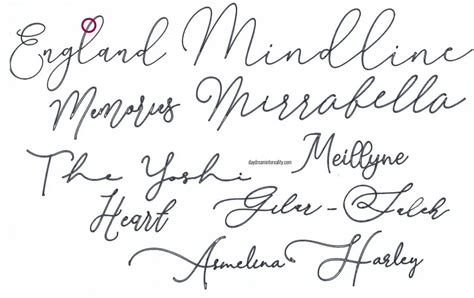 England Mindline
Memories Mirrabella
daydreamintoreality.com
The Yoshi Meillyne
Heart Gilar-Salek
Armelina Harley